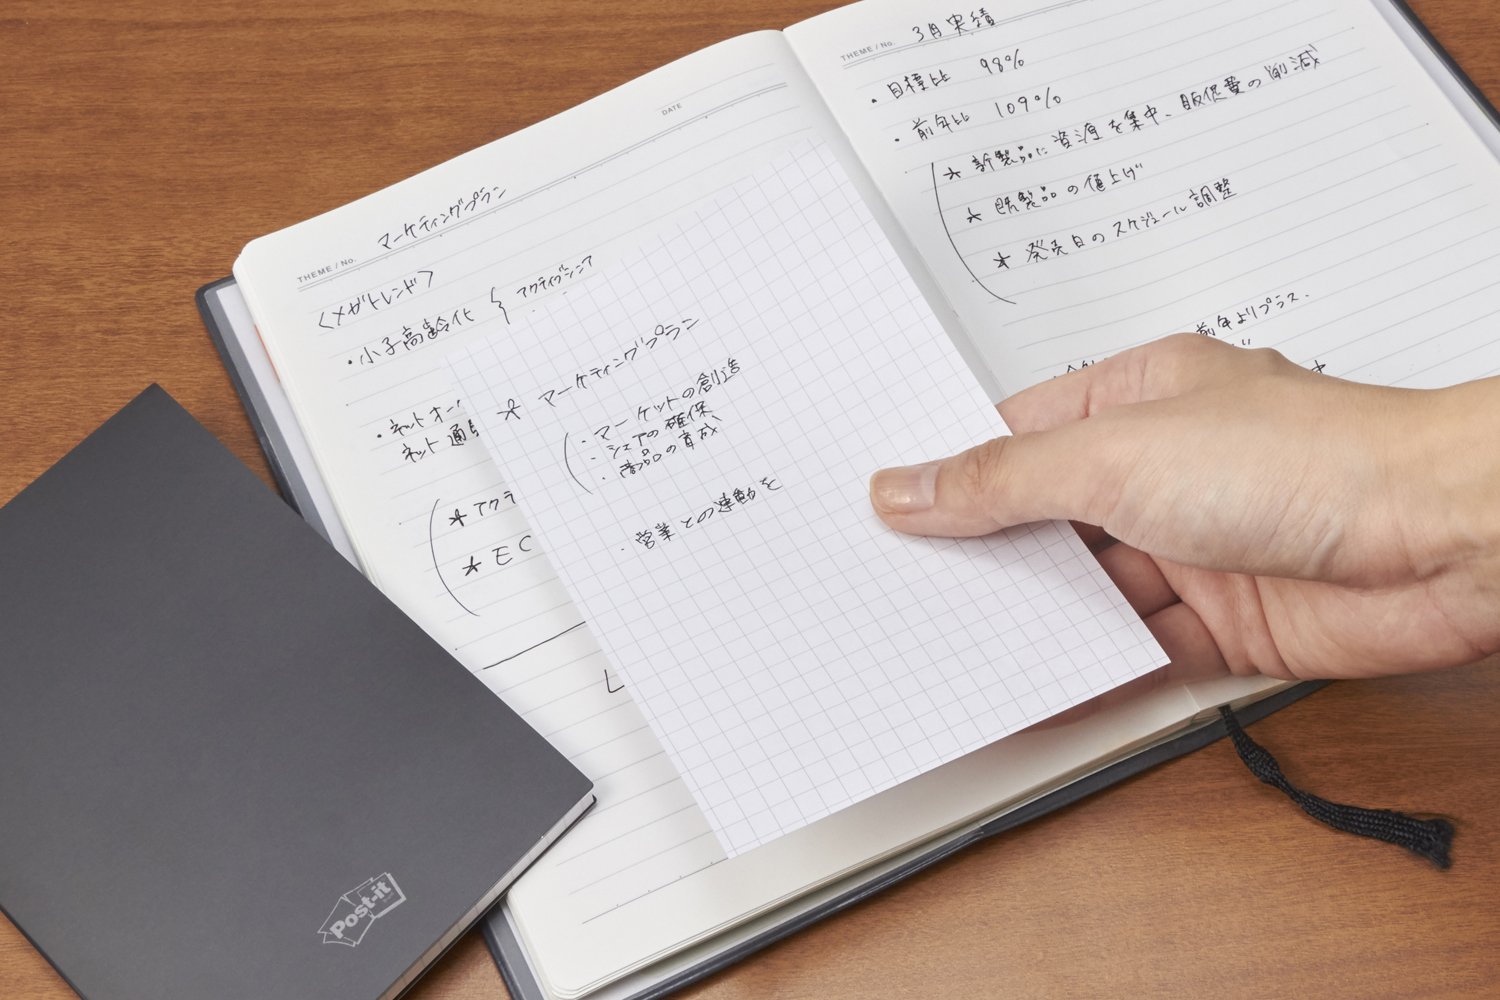 THEME / No.
マーケティングプラン
DATE
〈メガトレンド〉
・小子高齢化 { アクティブシニア
・ネットオー
ネット通
* アクテ
* EC
* マーケティングプラン
・マーケットの創造
・シェアの確保
・商品の育成
・営業との連動を
THEME / No.
3月実績
・目標比 98%
・前年比 109%
* 新製品に資源を集中、販促費の削減
* 既製品の値上げ
* 発売日のスケジュール調整
前年よりプラス.
中
Post-it